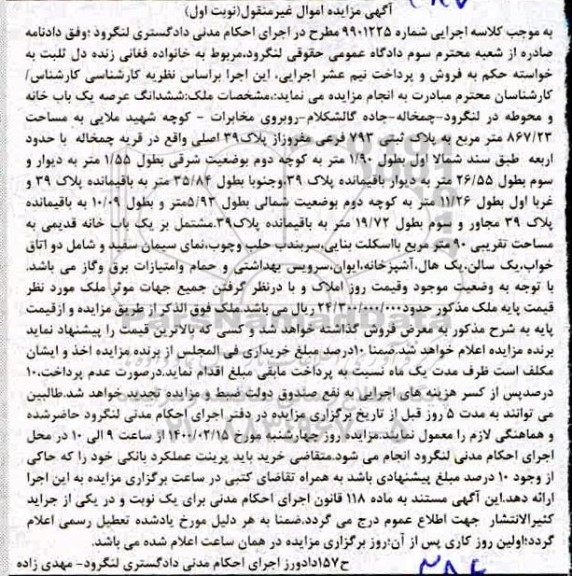 آگهی مزایده اموال غیرمنقول(نوبت اول)
به موجب کلاسه اجرایی شماره ۹۹۰۱۲۲۵ مطرح در اجرای احکام مدنی دادگستری لنگرود ؛وفق دادنامه
صادره از شعبه محترم سوم دادگاه عمومی حقوقی لنگرود،مربوط به خانواده فغانی زنده دل ثلبت به
خواسته حکم به فروش و پرداخت نیم عشر اجرایی، این اجرا براساس نظریه کارشناسی کارشناس/
کارشناسان محترم مبادرت به انجام مزایده می نماید:،مشخصات ملک:ششدانگ عرصه یک باب خانه
و محوطه در لنگرود-چمخاله-جاده گالشکلام-روبروی مخابرات - کوچه شهید ملایی به مساحت
۸۶۷/۲۳ متر مربع به پلاک ثبتی ۷۹۳ فرعی مفروزاز پلاک۳۹ اصلی واقع در قریه چمخاله با حدود
اربعه طبق سند شمالا اول بطول ۱/۹۰ متر به کوچه دوم بوضعیت شرقی بطول ۱/۵۵ متر به دیوار و
سوم بطول ۲۶/۵۵ متر به دیوار باقیمانده پلاک ۳۹،وجنوبا بطول ۳۵/۸۴ متر به باقیمانده پلاک ۳۹ و
غربا اول بطول ۱۱/۲۶ متر به کوچه دوم بوضعیت شمالی بطول ۵/۹۳متر و بطول ۱۰/۰۹ به باقیمانده
پلاک ۳۹ مجاور و سوم بطول ۱۹/۷۲ متر به باقیمانده پلاک۳۹.مشتمل بر یک باب خانه قدیمی به
مساحت تقریبی ۹۰ متر مربع بااسکلت بنایی،سربندب حلب وچوب،نمای سیمان سفید و شامل دو اتاق
خواب،یک سالن،یک هال،آشپزخانه،ایوان،سرویس بهداشتی و حمام وامتیازات برق وگاز می باشد.
با توجه به وضعیت موجود وقیمت روز املاک و با درنظر گرفتن جمیع جهات موثر ملک مورد نظر
قیمت پایه ملک مذکور حدود۲۲/۳۰۰/۰۰۰/۰۰۰ ریال می باشد.ملک فوق الذکر از طریق مزایده و ازقیمت
پایه به شرح مذکور به معرض فروش گذاشته خواهد شد و کسی که بالاترین قیمت را پیشنهاد نماید
برنده مزایده اعلام خواهد شد.ضمنا ۱۰درصد مبلغ خریداری فی المجلس از برنده مزایده اخذ و ایشان
مکلف است ظرف مدت یک ماه نسبت به پرداخت مابقی مبلغ اقدام نماید.درصورت عدم پرداخت،۱۰
درصدپس از کسر هزینه های اجرایی به نفع صندوق دولت ضبط و مزایده تجدید خواهد شد.طالبین
می توانند به مدت ۵ روز قبل از تاریخ برگزاری مزایده در دفتر اجرای احکام مدنی لنگرود حاضرشده
و هماهنگی لازم را معمول نمایند.مزایده روز چهارشنبه مورخ ۱۴۰۰/۰۲/۱۵ از ساعت ۹ الی ۱۰ در محل
اجرای احکام مدنی لنگرود انجام می شود.متقاضی خرید باید پرینت عملکرد بانکی خود را که حاکی
از وجود ۱۰ درصد مبلغ پیشنهادی باشد به همراه تقاضای کتبی در ساعت برگزاری مزایده به این اجرا
ارائه دهد.این آگهی مستند به ماده ۱۱۸ قانون اجرای احکام مدنی برای یک نوبت و در یکی از جراید
کثیرالانتشار جهت اطلاع عموم درج می گردد.ضمنا به هر دلیل مورخ یادشده تعطیل رسمی اعلام
گردد؛اولین روز کاری پس از آن؛روز برگزاری مزایده در همان ساعت اعلام شده می باشد.
ح۱۵۷دادورز اجرای احکام مدنی دادگستری لنگرود- مهدی زاده